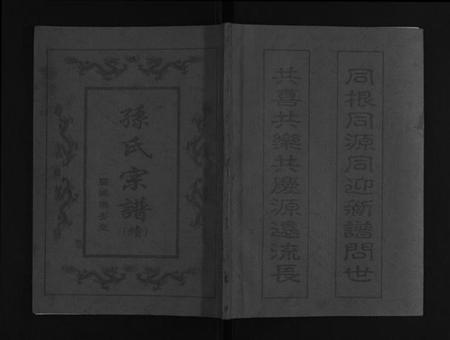 同根同源同迎新譜問世
共喜共樂共慶源遠流長
孫氏宗譜（續）